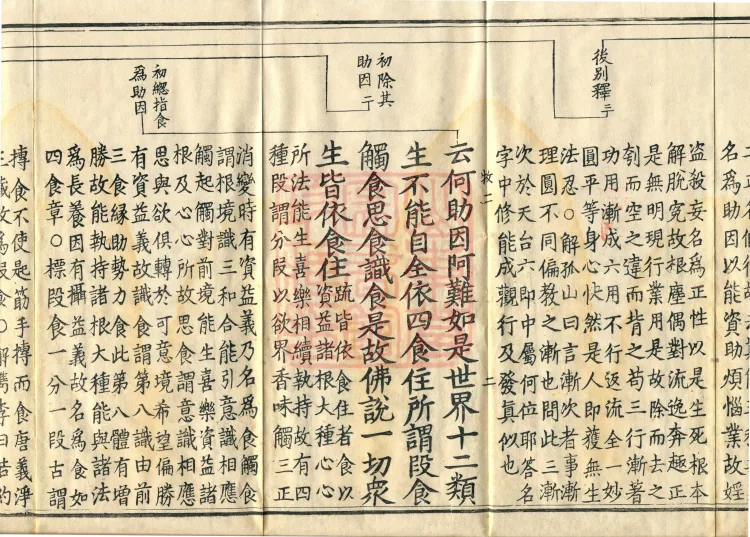 後別釋二
資助煩惱業
故婬
盜殺妄名爲正性以是生死根本
解脫究故根塵偶對流逸奔趣正
是無明現行業用是故除而去之
刳而空之違而背之苟三行漸著
功用漸成六用不行返流全一妙
圓平等身心快然是人即獲無生
法忍○解孤山曰言漸次者事漸
理圓不同偏教之漸也問此三漸
次於天台六即中屬何位耶答名
字中修能成觀行及發真似也
二
初除其
助因二
云何助因阿難如是世界十二類
生不能自全依四食住所謂段食
觸食思食識食是故佛說一切衆
生皆依食住疏皆依食住者食以
資益諸根大種心心
所法能生喜樂相續執持故有四
種段謂分段以欲界香味觸三正
初總指食
爲助因
消變時有資益義乃名爲食觸食
謂根境識三和合能引意識相應
觸起觸對前境能生喜樂資益諸
根及心心所故思食謂意識相應
思與欲俱轉於可意境希望偏勝
有資益義故識食謂第八識由前
三食緣助勢力食此第八體有增
勝故能執持諸根大種能與諸法
爲長養因有攝益義故名爲食如
四食章○標段食一分一段古謂
摶食不使是筋手摶而食唐義淨